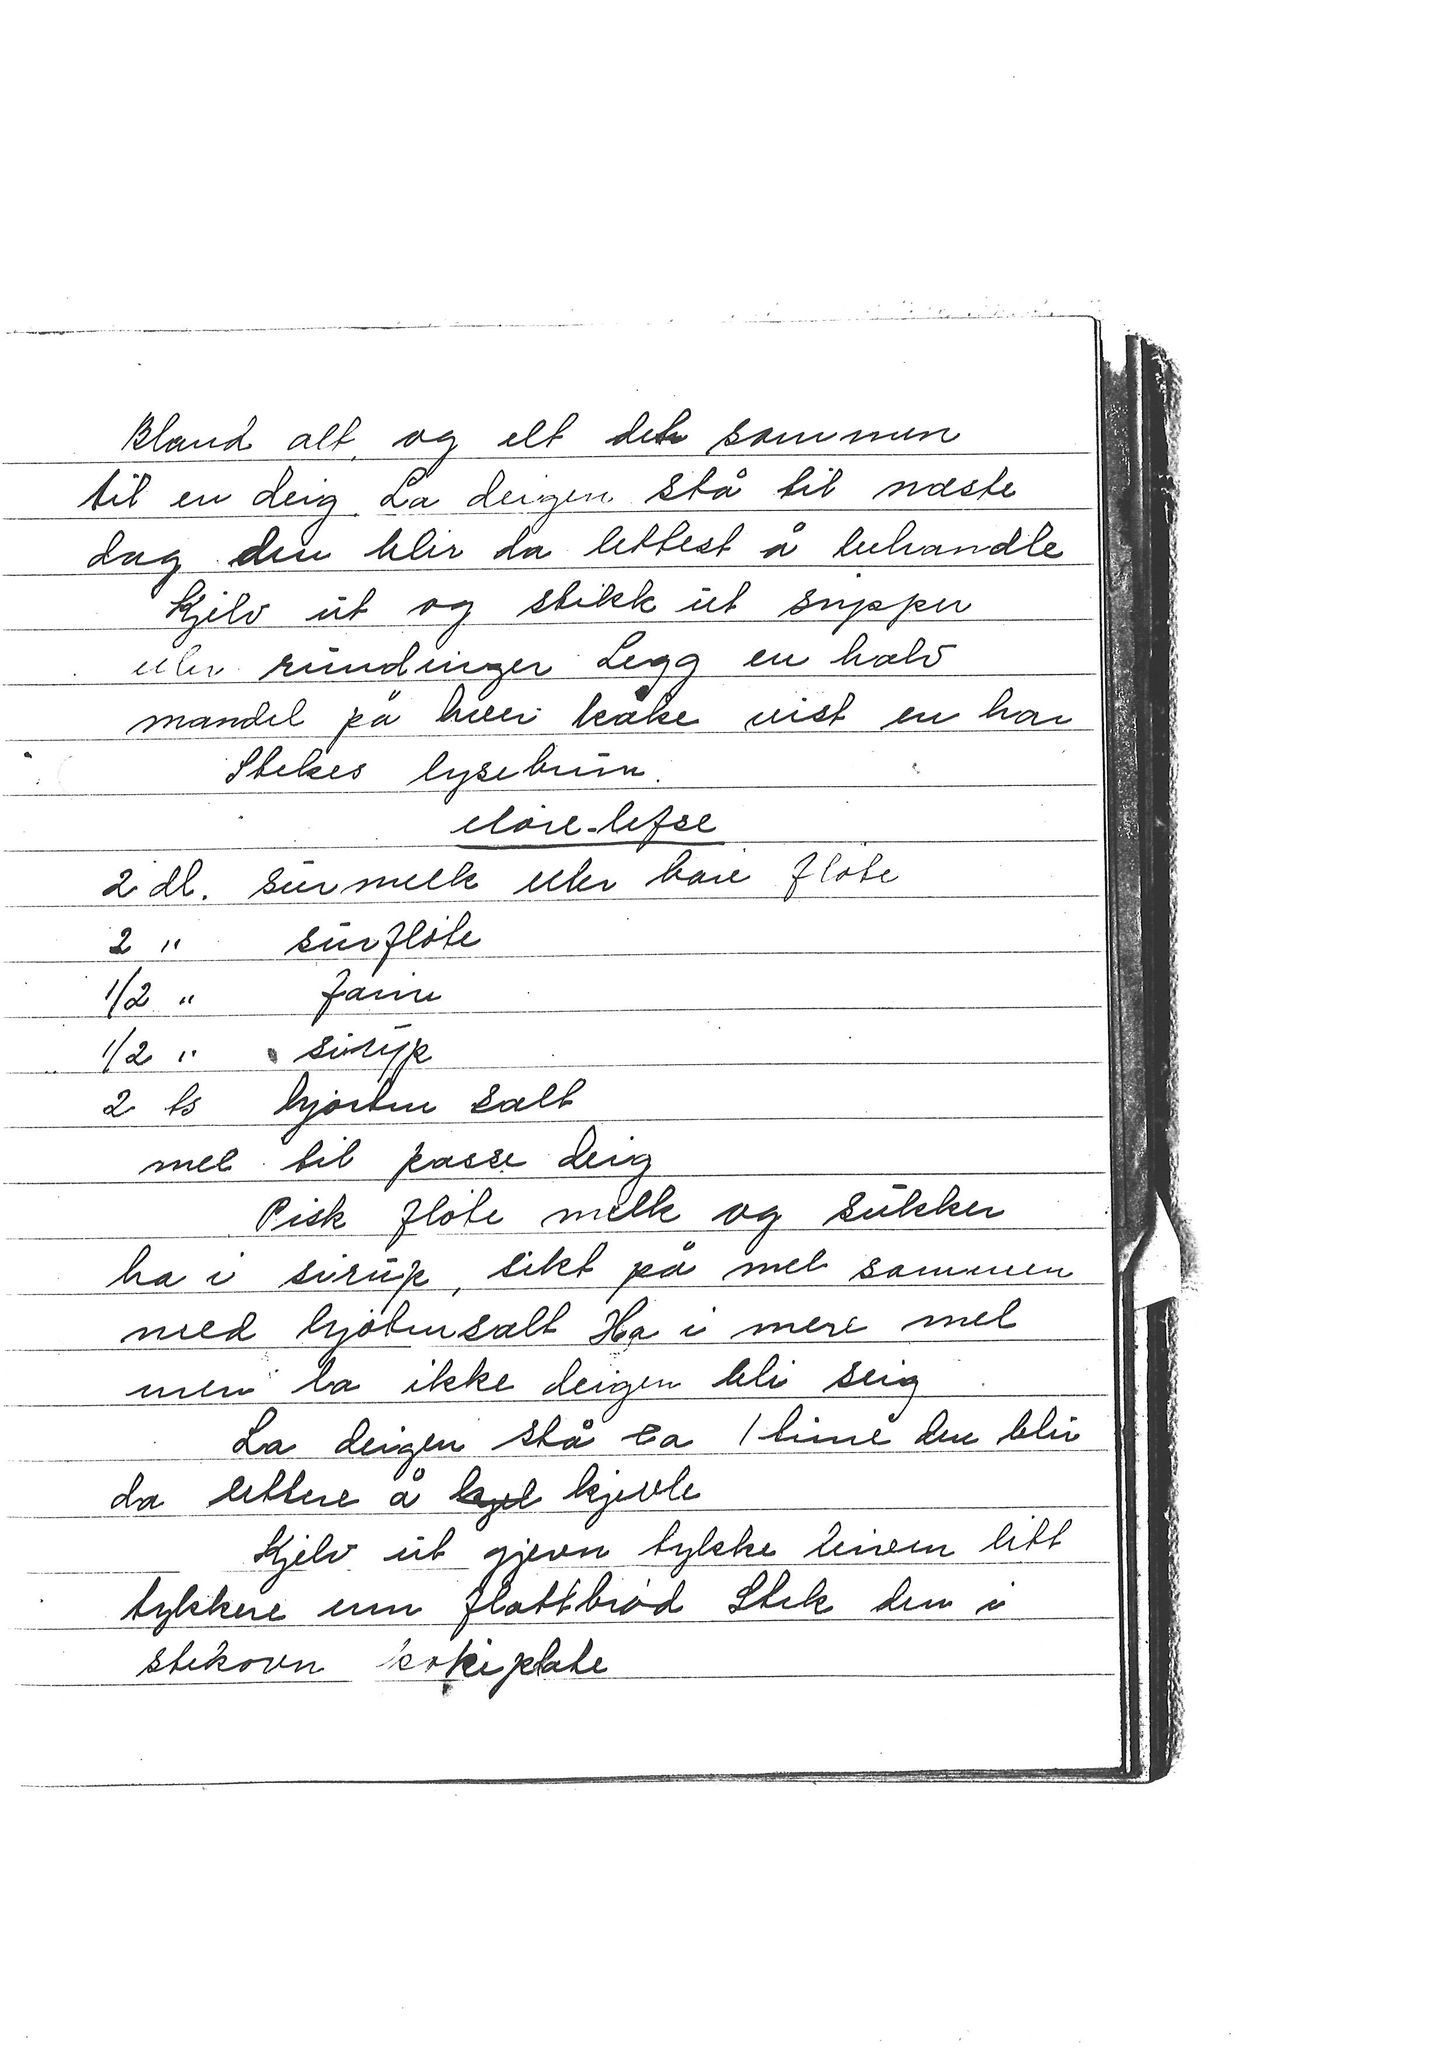 Bland alt, og elt det sammen
til en deig. La deigen stå til næste
dag den blir da lettest å behandle
Kjelv ut og stikk ut snipper
eller rundinger Legg en halv
mandel på hver kake vist en har
Stekes lysebrun.
Møre-lefse
2 dl. surmelk eller bare fløte
2 " surfløte
1/2 " farin
1/2 " sirup
2 ts hjorten salt
mel til passe deig
Pisk fløte melk og sukker
ha i sirup, sikt på mel sammen
med hjotensalt Ha i mere mel
men la ikke deigen bli seig
La deigen stå ca 1 time den blir
da lettere å kjel kjevle
Kjelv ut gjevn tykke leiven litt
tykkere enn flattbrød Stek dem i
stekovn kokeplate